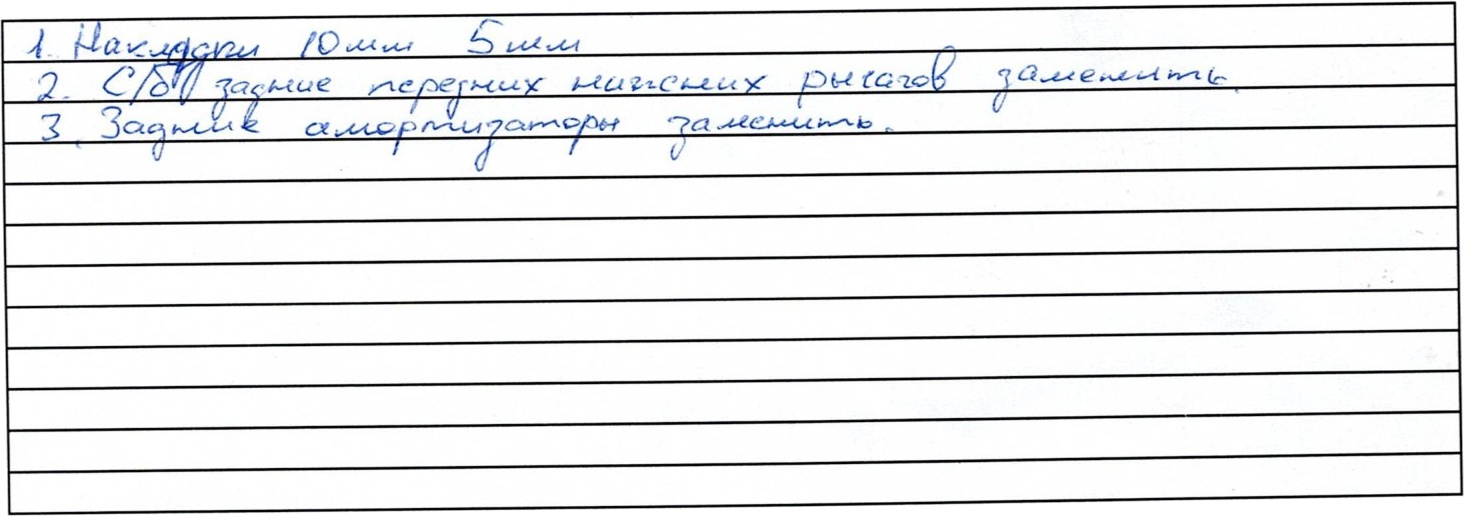 1. Накладки 10мм 5мм
2. С/б задние передних нижних рычагов заменить.
3. Задние амортизаторы заменить.